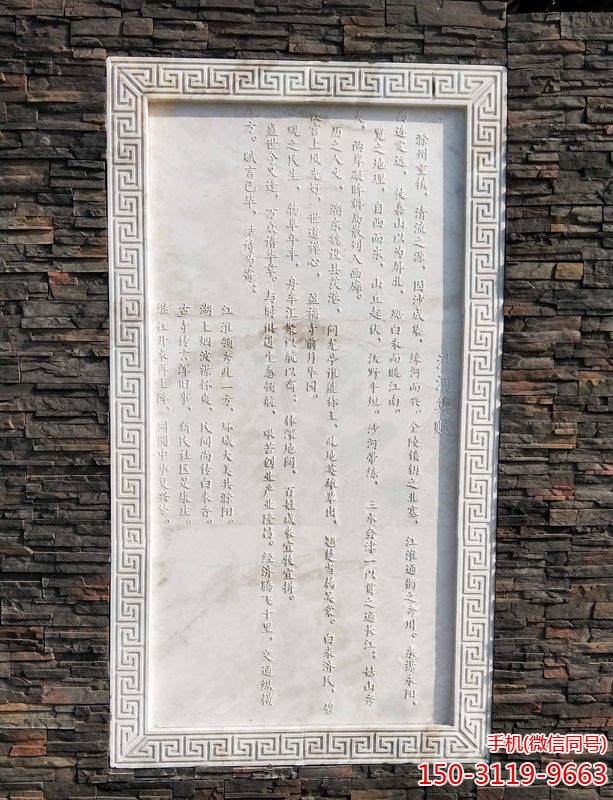 沙河集赋
滁州重镇，清流之源，因沙成集，缘河而兴。金陵锁钥之北塞，江淮通衢之秀川。东襟永阳，
西连定远，仗嘉山以为屏北，踞白米而眺江南。
览之地理，自西而东，山丘起伏，沃野平坦。沙河带练，三水会津一以贯之通长江，姑山秀
两岸凝眸群岛散列入画廊。
历之人文，湖东魏设县故港，问龙亭谁能称王，此地英雄辈出，翘楚当属吴棠。白米济民，碧
霞宫上风光好，世道禅心，盈福寺前月华圆。
观之民生，物阜年丰，舟车汇聚以航以商，林深地阔，百姓咸乘宜牧宜耕。
盛世今又逢，万众谱华章。与时俱进生态领航，艰苦创业产业隆昌。经济腾飞千里，交通纵横
八方。赋言已毕，结诗为商。
江淮领秀此一方，环城大美县滁阳。
湖上烟波谋怀爽，民间尚传白米香。
古寺传言浑旧事，新民社区是康庄。
继江开来再上阵，同圆中华复兴梦。
手机(微信同号)
150-3119-9663